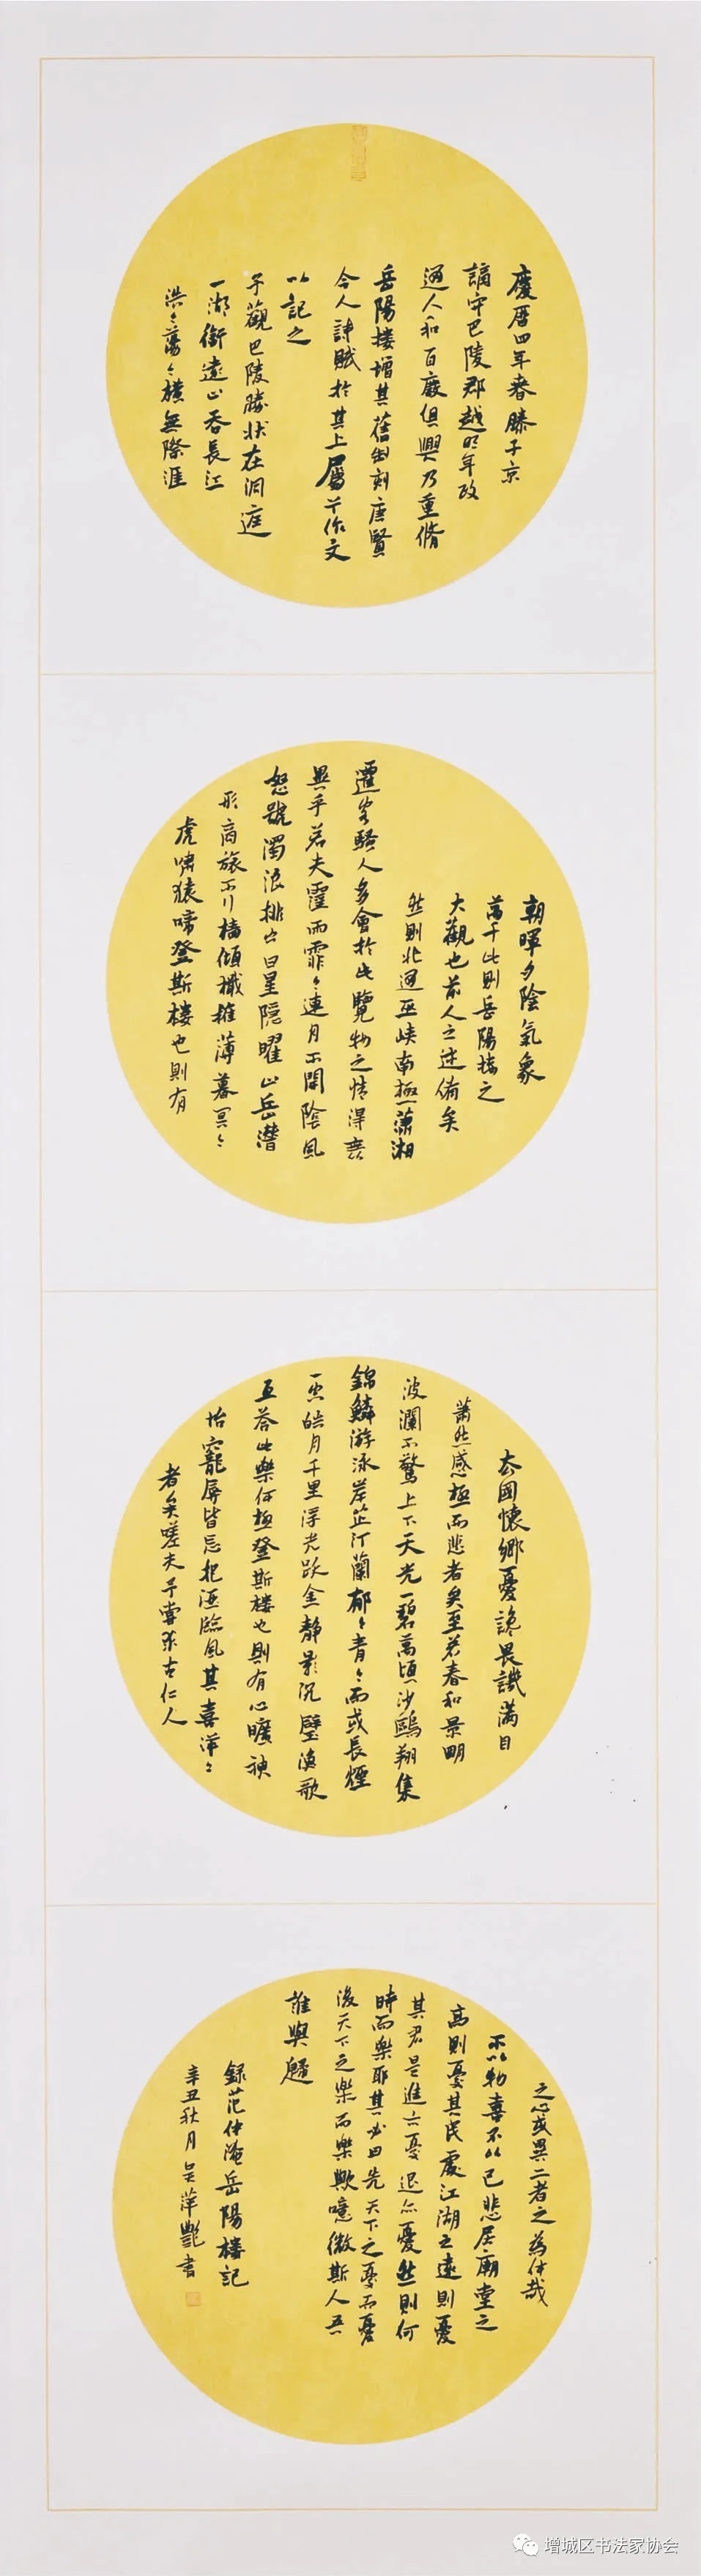 慶曆四年春滕子京
謫守巴陵郡越明年政
通人和百廢俱興乃重脩
岳陽樓增其舊制刻唐賢
今人詩賦於其上屬予作文
以記之
予觀巴陵勝狀在洞庭
一湖銜遠山吞長江
浩浩蕩蕩橫無際涯
朝暉夕陰氣象
萬千此則岳陽樓之
大觀也前人之述備矣
然則北通巫峽南極瀟湘
遷客騷人多會於此覽物之情得無
異乎若夫霪雨霏霏連月不開陰風
怒號濁浪排空日星隱曜山岳潛
形商旅不行檣傾檝摧薄暮冥冥
虎嘯猿啼登斯樓也則有
去國懷鄉憂讒畏譏滿目
蕭然感極而悲者矣至若春和景明
波瀾不驚上下天光一碧萬頃沙鷗翔集
錦鱗游泳岸芷汀蘭郁郁青青而或長煙
一空皓月千里浮光躍金靜影沉璧漁歌
互答此樂何極登斯樓也則有心曠神
怡寵辱皆忘把酒臨風其喜洋洋
者矣嗟夫予嘗求古仁人
之心或異二者之為何哉
不以物喜不以己悲居廟堂之
高則憂其民處江湖之遠則憂
其君是進亦憂退亦憂然則何
時而樂耶其必曰先天下之憂而憂
後天下之樂而樂歟噫微斯人吾
誰與歸
錄范仲淹岳陽樓記
辛丑秋月吳萍艷書
增城区书法家协会